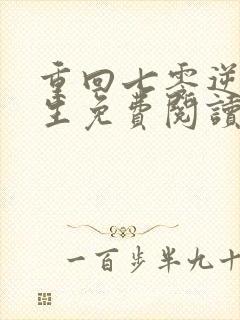 重回七零逆
生免費閱讀
一百步半九十